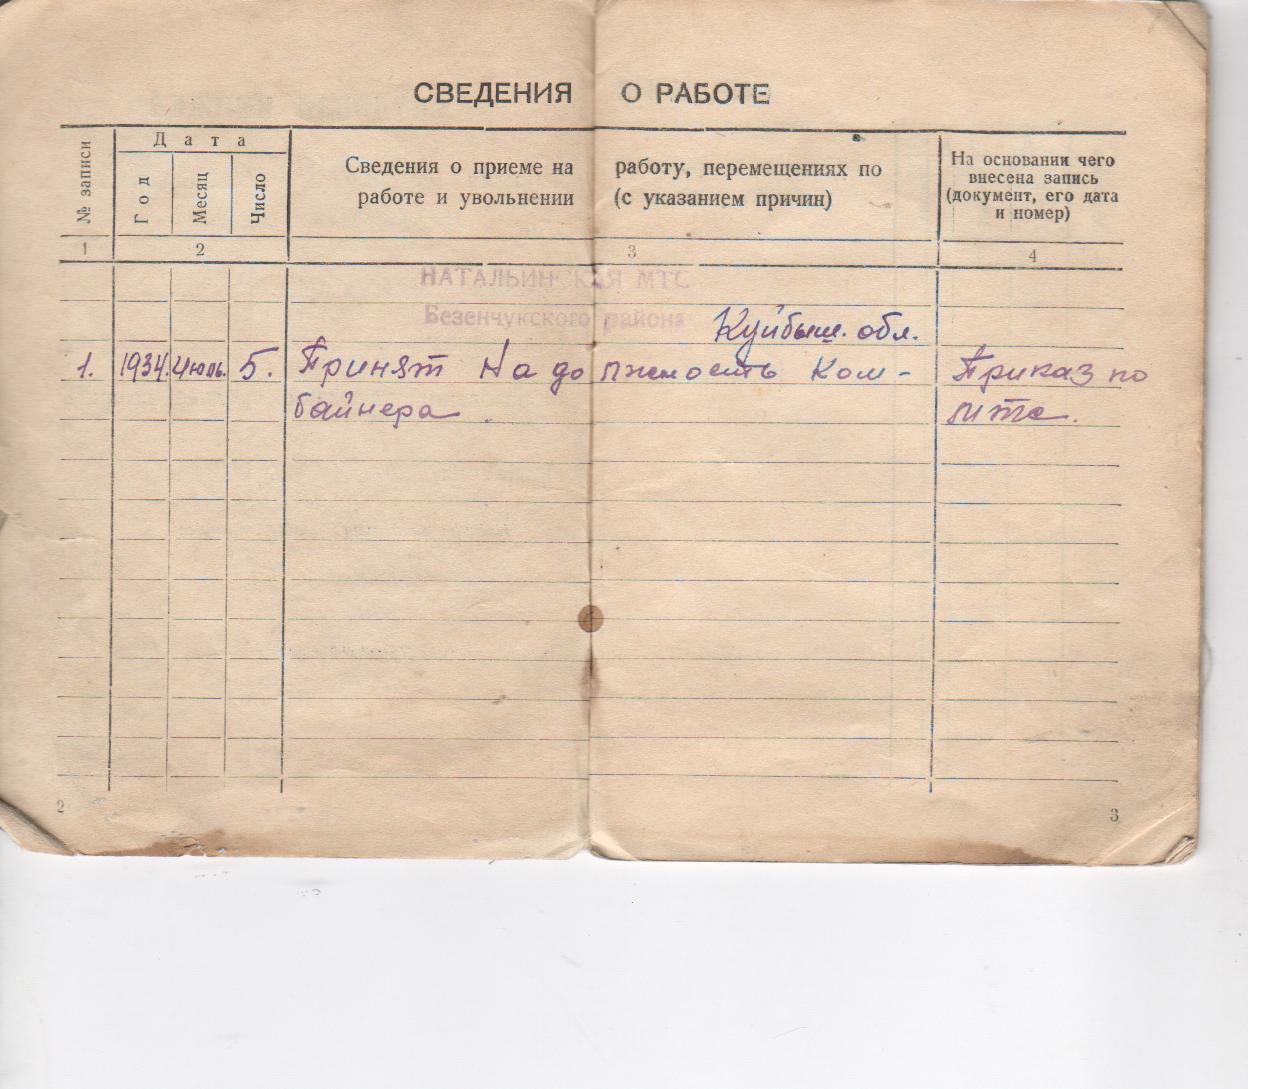 СВЕДЕНИЯ О РАБОТЕ
№ записи
Дата
Год
Месяц
Число
Сведения о приеме на работу, перемещениях по
работе и увольнении (с указанием причин)
На основании чего
внесена запись
(документ, его дата
и номер)
1 2 3 4
НАТАЛЬИНСКАЯ МТС
Безенчукского района
Куйбыш. обл.
1. 1934. Июль. 5. Принят на должность ком- Приказ по
байнера. мтс.
2 3